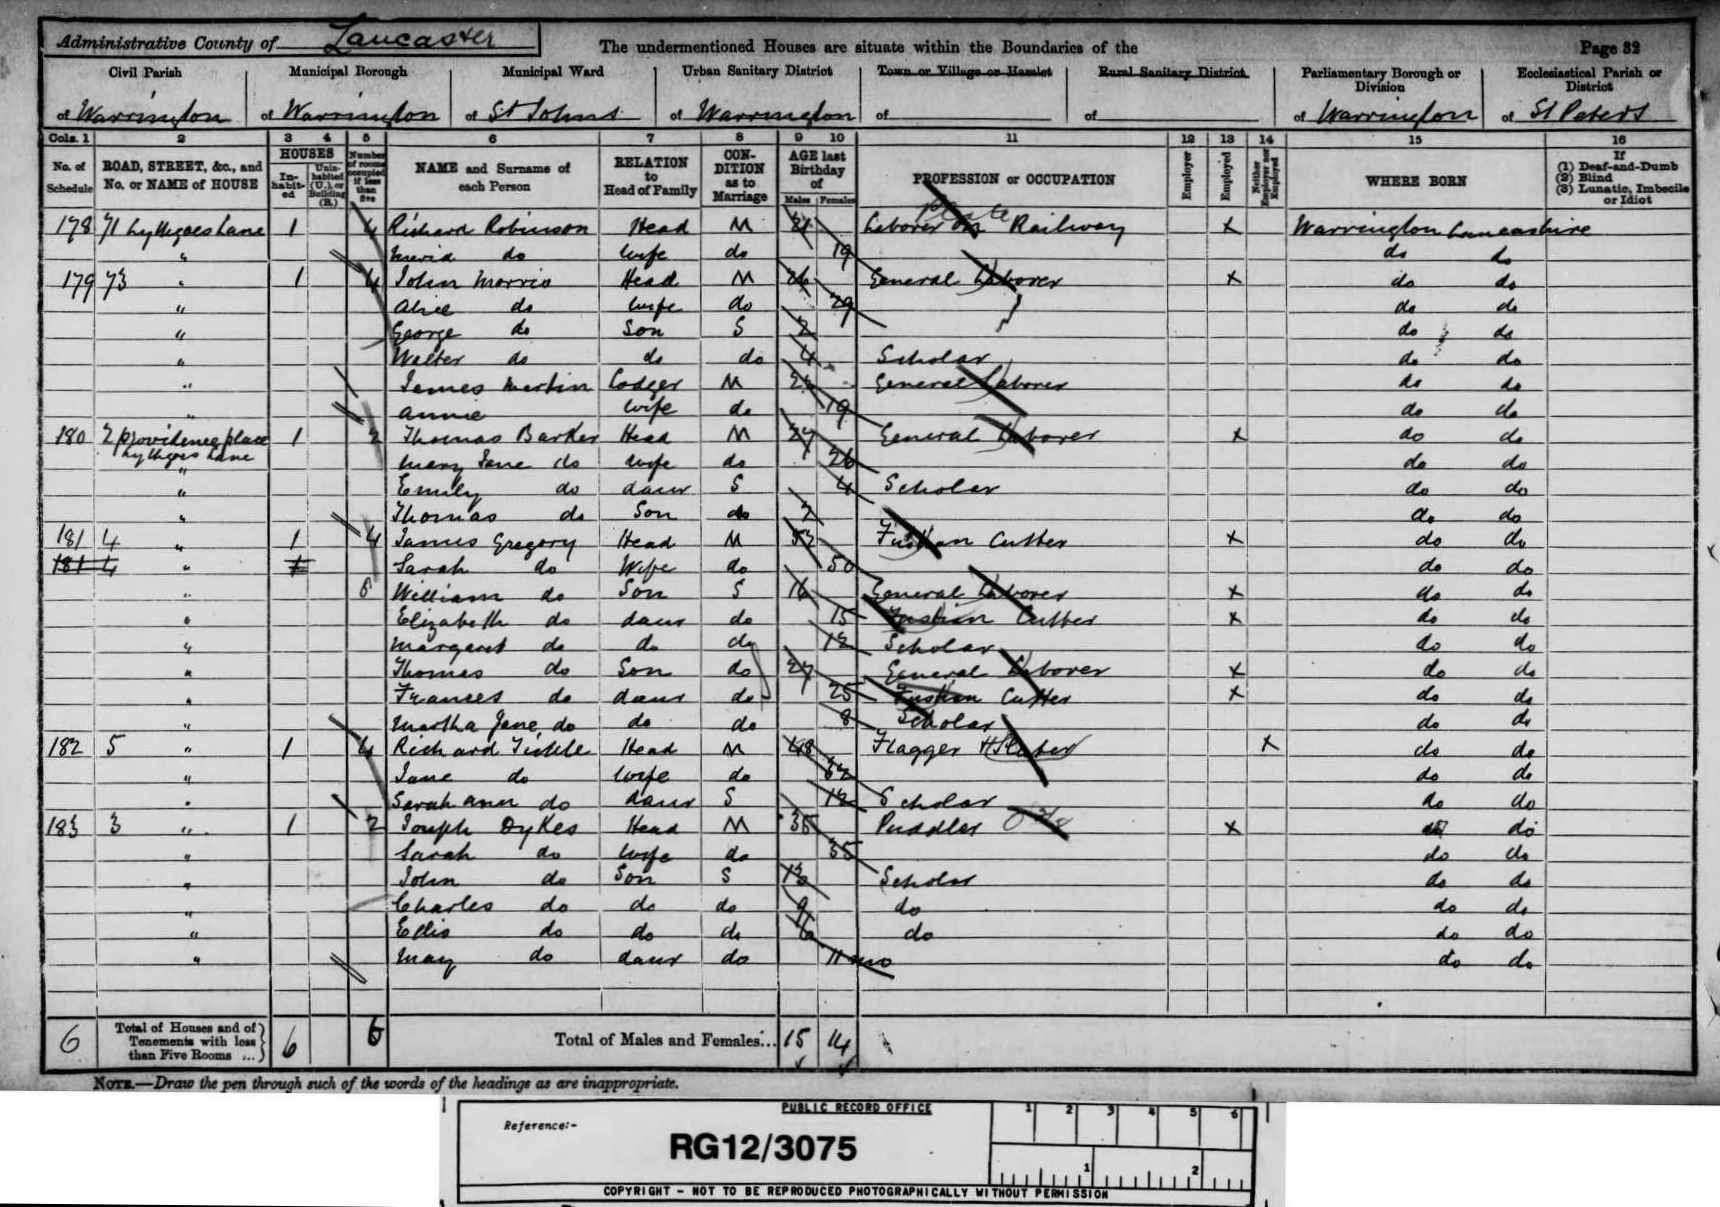 Administrative County of Lancaster The undermentioned Houses are situate within the Boundaries of the Page 32
Civil Parish Municipal Borough Municipal Ward Urban Sanitary District Town or Village or Hamlet Rural Sanitary District Parliamentary Borough or Division Ecclesiastical Parish or District
of Warrington of Warrington of St Johns of Warrington of of of Warrington of St Peters
Cols. 1 2 3 4 5 6 7 8 9 10 11 12 13 14 15 16
No. of Schedule ROAD, STREET, &c., and No. or NAME of HOUSE HOUSES Inhabited Uninhabited (U.), or Building (B.) Number of rooms occupied if less than five NAME and Surname of each Person RELATION to Head of Family CONDITION as to Marriage AGE last Birthday of Males Females PROFESSION or OCCUPATION Employer Employed Neither Employer nor Employed WHERE BORN If (1) Deaf-and-Dumb (2) Blind (3) Lunatic, Imbecile or Idiot
178 71 Lythgoes Lane 1 4 Richard Robinson Head M 21 Laborer on Plate Railway x Warrington Lancashire
" do wife do 19 do do
179 73 " 1 4 John Morris Head M 26 General Laborer x do do
" Alice do wife do 29 do do
" George do Son S 2 do do
" Walter do do do 4 Scholar do do
" James Martin Lodger M General Laborer do do
" Annie wife do 19 do do
180 2 Providence place Lythgoes Lane 1 2 Thomas Barker Head M 27 General Laborer x do do
" Mary Jane do wife do 26 do do
" Emily do daur S 4 Scholar do do
" Thomas do Son do 2 do do
181 4 " 1 4 James Gregory Head M 53 Fustian Cutter x do do
181 4 " 1 Sarah do Wife do 50 do do
" 8 William do Son S 16 General Laborer x do do
" Elizabeth do daur do 15 Fustian Cutter x do do
" Margaret do do do 12 Scholar do do
" Thomas do Son do 27 General Laborer x do do
" Frances do daur do 25 Fustian Cutter x do do
" Martha Jane do do do 8 Scholar do do
182 5 " 1 4 Richard Tickle Head M 48 Flagger & Slater x do do
" Jane do wife do do do
" Sarah ann do daur S 12 Scholar do do
183 3 " 1 2 Joseph Dykes Head M 35 Puddler x do do
" Sarah do wife do 35 do do
" John do Son S 13 Scholar do do
" Charles do do do 9 do do do
" Ellis do do do 6 do do do
" May do daur do 11 mo do do
6 Total of Houses and of Tenements with less than Five Rooms ... 6 6 Total of Males and Females... 15 14
NOTE.—Draw the pen through such of the words of the headings as are inappropriate.
PUBLIC RECORD OFFICE 1 2 3 4 5 6
Reference:-
RG12/3075
1 2
COPYRIGHT - NOT TO BE REPRODUCED PHOTOGRAPHICALLY WITHOUT PERMISSION